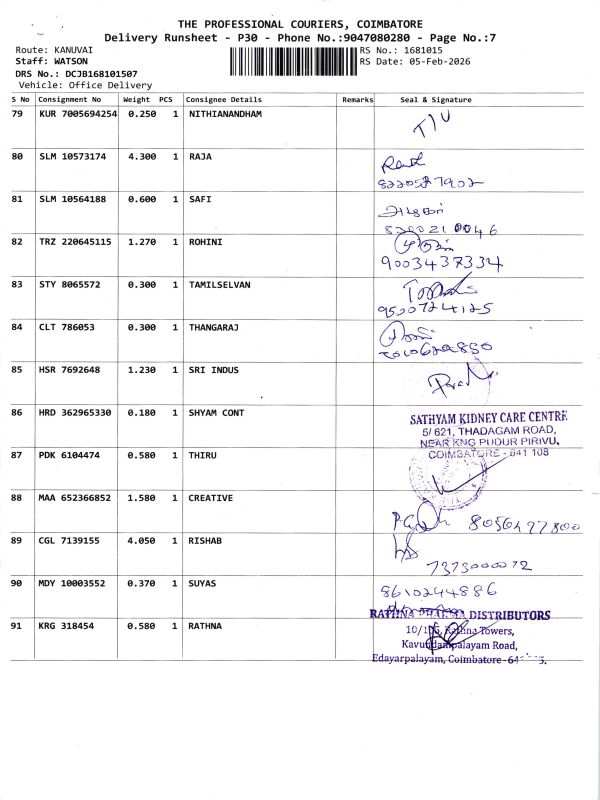 THE PROFESSIONAL COURIERS, COIMBATORE
Delivery Runsheet - P30 - Phone No.:9047080280 - Page No.:7
Route: KANUVAI
Staff: WATSON
DRS No.: DCJB168101507
Vehicle: Office Delivery
RS No.: 1681015
RS Date: 05-Feb-2026
S No Consignment No Weight PCS Consignee Details Remarks Seal & Signature
79 KUR 7005694254 0.250 1 NITHIANANDHAM
80 SLM 10573174 4.300 1 RAJA
81 SLM 10564188 0.600 1 SAFI
82 TRZ 220645115 1.270 1 ROHINI
9003437334
83 STY 8065572 0.300 1 TAMILSELVAN
9500724125
84 CLT 786053 0.300 1 THANGARAJ
85 HSR 7692648 1.230 1 SRI INDUS
86 HRD 362965330 0.180 1 SHYAM CONT
SATHYAM KIDNEY CARE CENTRE
5/ 621, THADAGAM ROAD,
NEAR KNG PUDUR PIRIVU,
COIMBATORE - 641 108
87 PDK 6104474 0.580 1 THIRU
88 MAA 652366852 1.580 1 CREATIVE
89 CGL 7139155 4.050 1 RISHAB
7373000072
90 MDY 10003552 0.370 1 SUYAS
8610244886
91 KRG 318454 0.580 1 RATHNA
RATHNA DISTRIBUTORS
Rathna Towers,
Kavundampalayam Road,
Edayarpalayam, Coimbatore